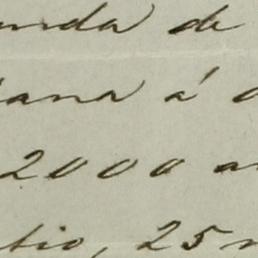 unda de
ana á
2000 a
tio, 25